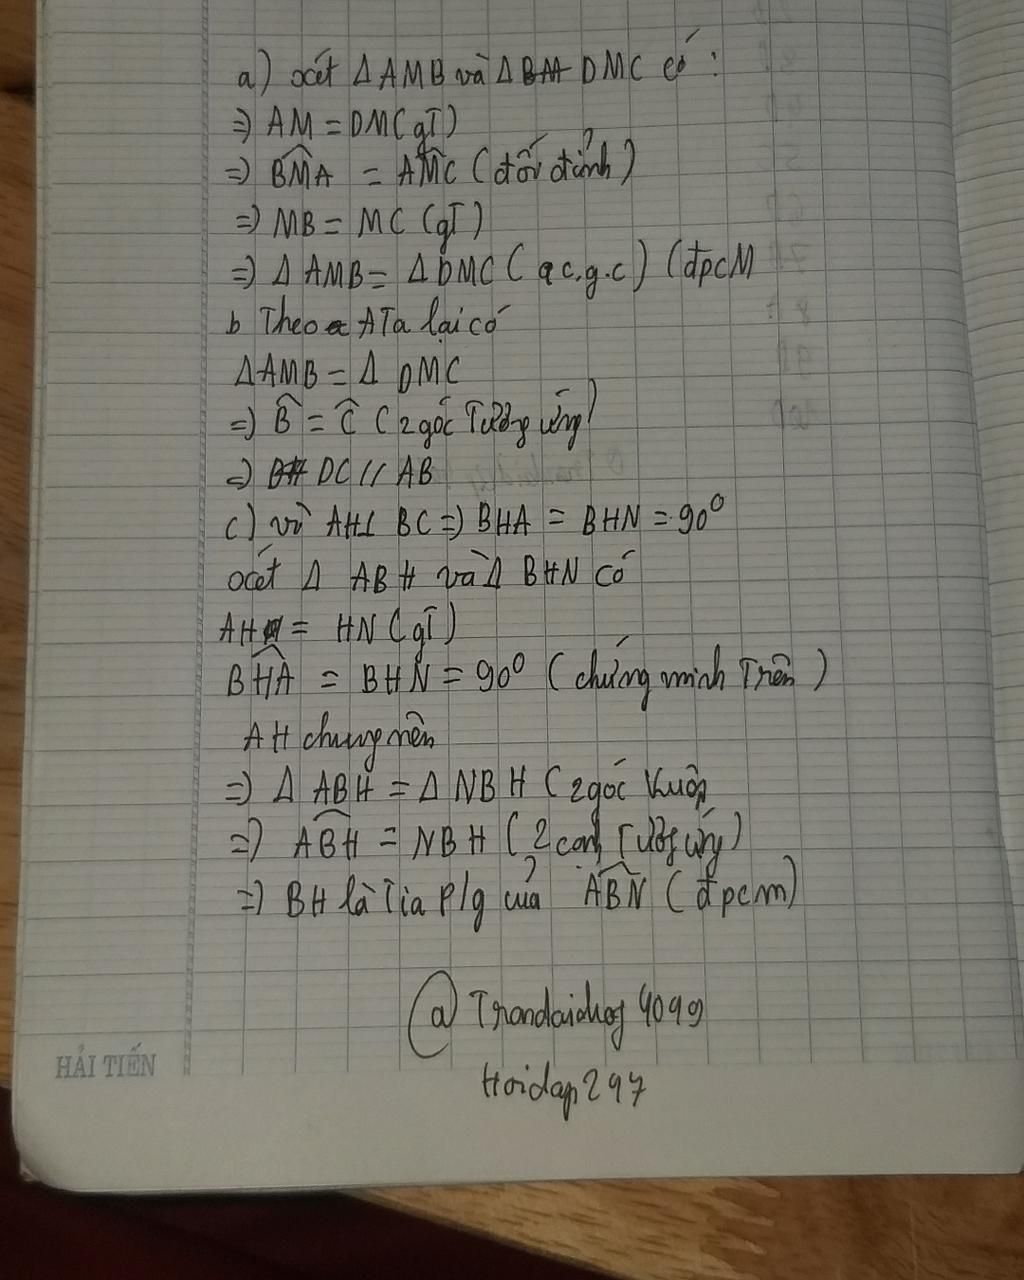 a) xét Δ AMB và Δ DMC có :
=) AM = DM ( gT )
=) BMA = AMC ( đối đỉnh )
=) MB = MC ( gT )
=) Δ AMB = Δ DMC ( c.g.c ) ( đpcM
b Theo A Ta lại có
Δ AMB = Δ DMC
=) B̂ = Ĉ ( 2 góc Tương ứng )
=) DC // AB
c) vì AH⊥ BC =) BHA = BHN = 90⁰
xét Δ ABH và Δ BHN có
AH = HN ( gT )
BHA = BHN = 90⁰ ( chứng minh Trên )
AH chung nên
=) Δ ABH = Δ NBH ( 2 góc Vuông
=) ABH = NBH ( 2 Tương ứng )
=) BH là Tia P/g của ABN ( đpcm )
@ Trandaidung 4099
Hoidap 247
HẢI TIẾN